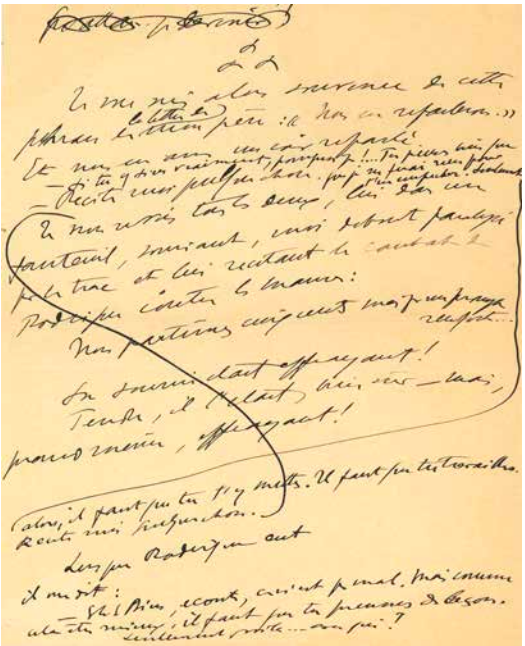 Je me suis alors souvenu de cette
la lettre de
phrase de mon père : « Nous en reparlerons. »
Et nous en avons un soir reparlé.
— Si tu y tiens vraiment, pourquoi pas ... Tu penses bien que
— Récite moi quelque chose. que je ne ferai rien pour
t'en empêcher. Seulement
Je nous revois tous les deux, lui dans un
fauteuil, souriant, moi debout paralysé
par le trac et lui récitant le combat de
Rodrigue contre les Maures :
Nous partîmes cinq cents mais par un prompt
renfort...
Son sourire était effrayant !
Tendre, il l'était, bien sûr — mais,
pour moi, effrayant !
alors, il faut que tu t'y mettes. Il faut que tu travailles.
Récite moi quelque chose.
Lorsque Rodrigue eut
il me dit :
— Eh ! Bien, écoute, ce n'est pas mal. Mais comme
il faut que tu prennes des leçons.
Seulement voilà ... avec qui ?